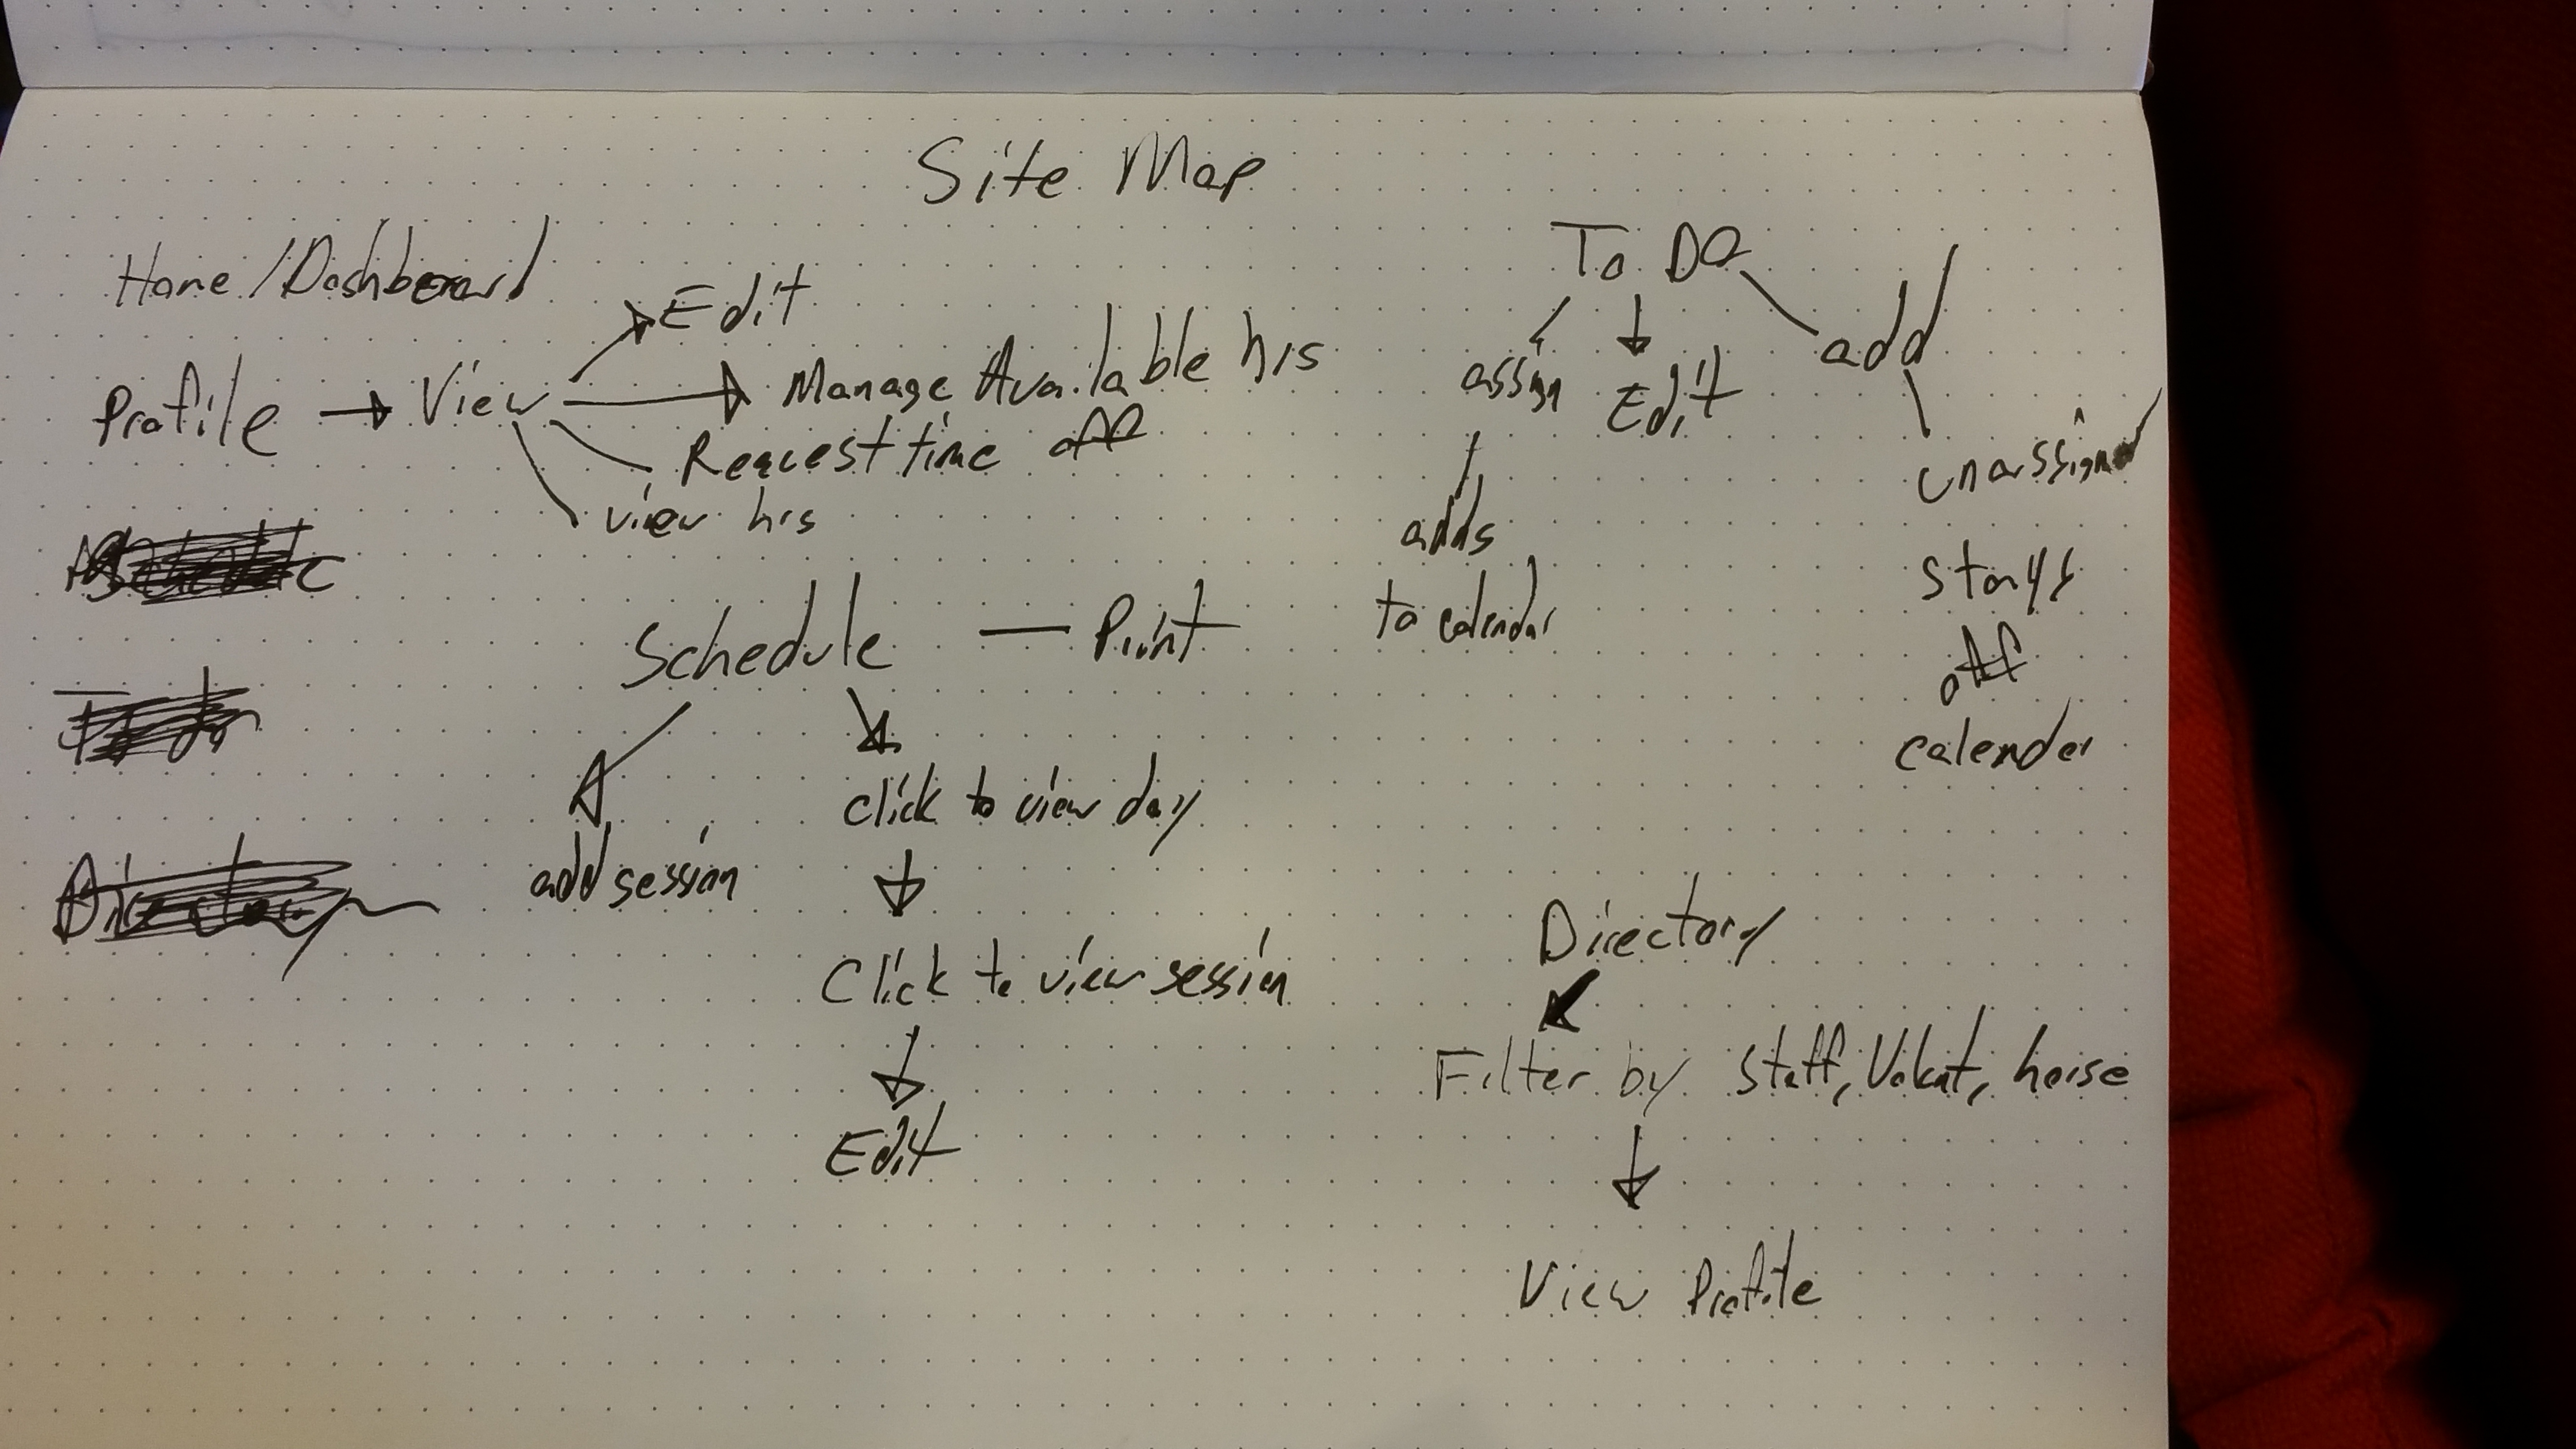 Site Map
Home/Dashboard
Profile → View
Edit
Manage Available hrs
Request time off
view hrs
Schedule
To do
Directory
Schedule — Print
add session
click to view day
Click to view session
Edit
To Do
assign
Edit
add
adds
to calendar
unassigned
stays
off
calender
Directory
Filter by Staff, Volunt, horse
View Profile